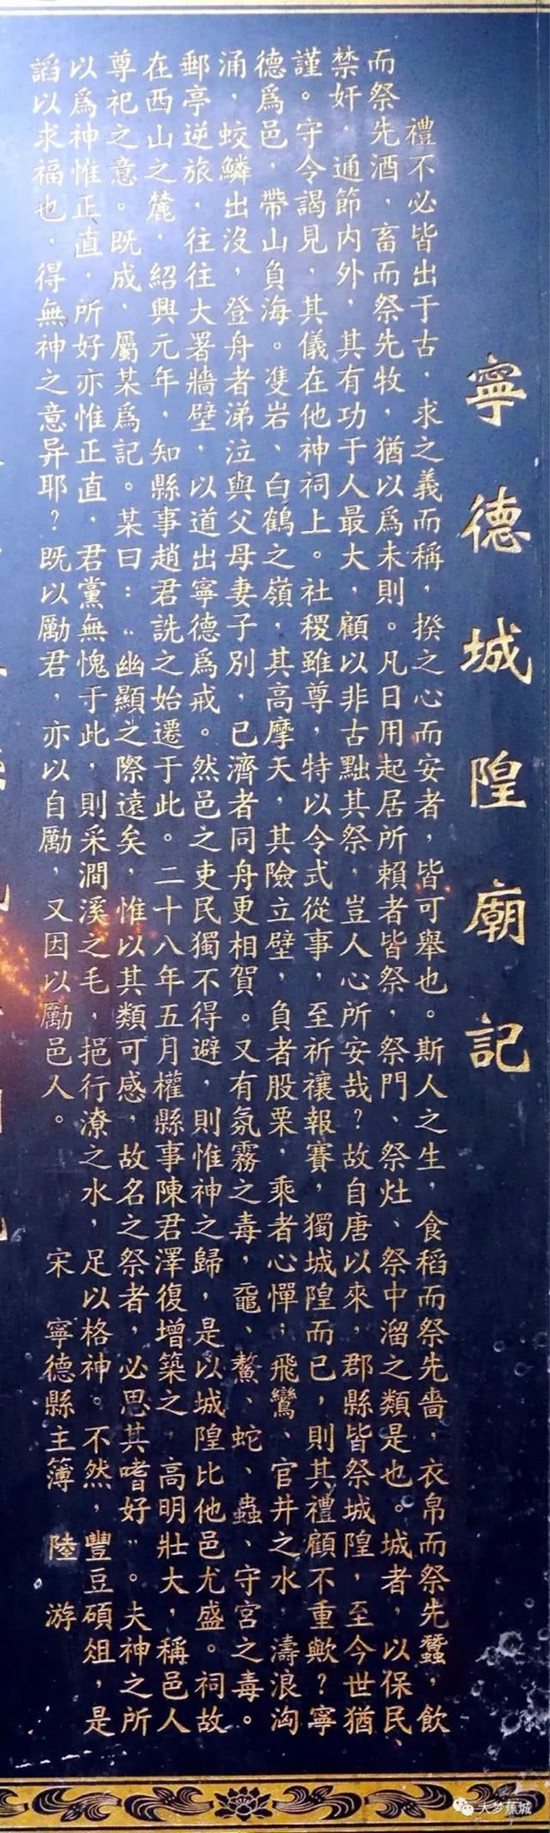 寧德城隍廟記
禮不必皆出于古，求之義而稱，揆之心而安者，皆可舉也。斯人之生，食稻而祭先嗇，衣帛而祭先蠶，飲
而祭先酒，畜而祭先牧，猶以爲未則。凡日用起居所賴者皆祭，祭門、祭灶、祭中溜之類是也。城者，以保民、
禁奸，通節内外，其有功于人最大，顧以非古黜其祭，豈人心所安哉？故自唐以來，郡縣皆祭城隍，至今世猶
謹。守令謁見，其儀在他神祠上。社稷雖尊，特以令式從事，至祈禳報賽，獨城隍而已，則其禮顧不重歟？寧
德爲邑，帶山負海。雙岩、白鶴之嶺，其高摩天，其險立壁，負者股栗，乘者心憚；飛鸞、官井之水，濤浪洶
涌，蛟鱗出没，登舟者涕泣與父母妻子别，已濟者同舟更相賀。又有氛霧之毒，黿、鰲、蛇、蟲、守宮之毒。
郵亭逆旅，往往大署牆壁，以道出寧德爲戒。然邑之吏民獨不得避，則惟神之歸，是以城隍比他邑尤盛。祠故
在西山之麓，紹興元年，知縣事趙君詵之始遷于此。二十八年五月權縣事陳君澤復增築之，高明壯大，稱邑人
尊祀之意。既成，屬某爲記。某曰：“幽顯之際遠矣，惟以其類可感，故名之祭者，必思其嗜好”。夫神之所
以爲神惟正直，所好亦惟正直，君黨無愧于此，則采澗溪之毛，挹行潦之水，足以格神。不然，豐豆碩俎，是
謟以求福也，得無神之意异耶？既以勵君，亦以自勵，又因以勵邑人。
宋 寧德縣主簿 陸游
大梦蕉城